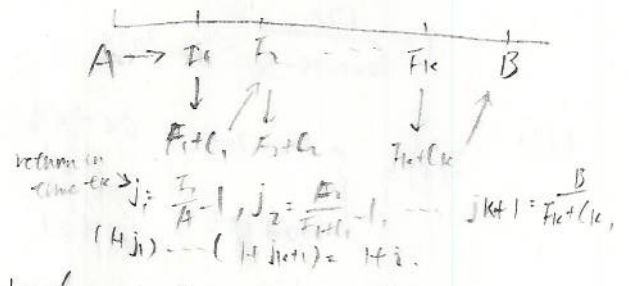 A → F₁ F₂ ---- Fk B
F₁+C₁ F₂+C₂ Fk+Ck
return in
time tk > j₁ = F₁/A - 1, j₂ = F₂/(F₁+C₁) - 1, ---- jk+1 = B/(Fk+Ck),
(1+j₁) ---- (1+jk+1) = 1+i.